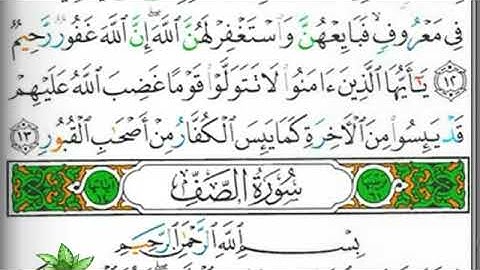 فِى مَعْرُوفٍ فَبَايِعْهُنَّ وَاسْتَغْفِرْ لَهُنَّ اللَّهَ إِنَّ اللَّهَ غَفُورٌ رَّحِيمٌ
١٢ يَٰٓأَيُّهَا الَّذِينَ ءَامَنُوا لَا تَتَوَلَّوْا قَوْمًا غَضِبَ اللَّهُ عَلَيْهِمْ
قَدْ يَئِسُوا مِنَ الْآخِرَةِ كَمَا يَئِسَ الْكُفَّارُ مِنْ أَصْحَابِ الْقُبُورِ ١٣
سُورَةُ الصَّفِّ
بِسْمِ اللَّهِ الرَّحْمَٰنِ الرَّحِيمِ